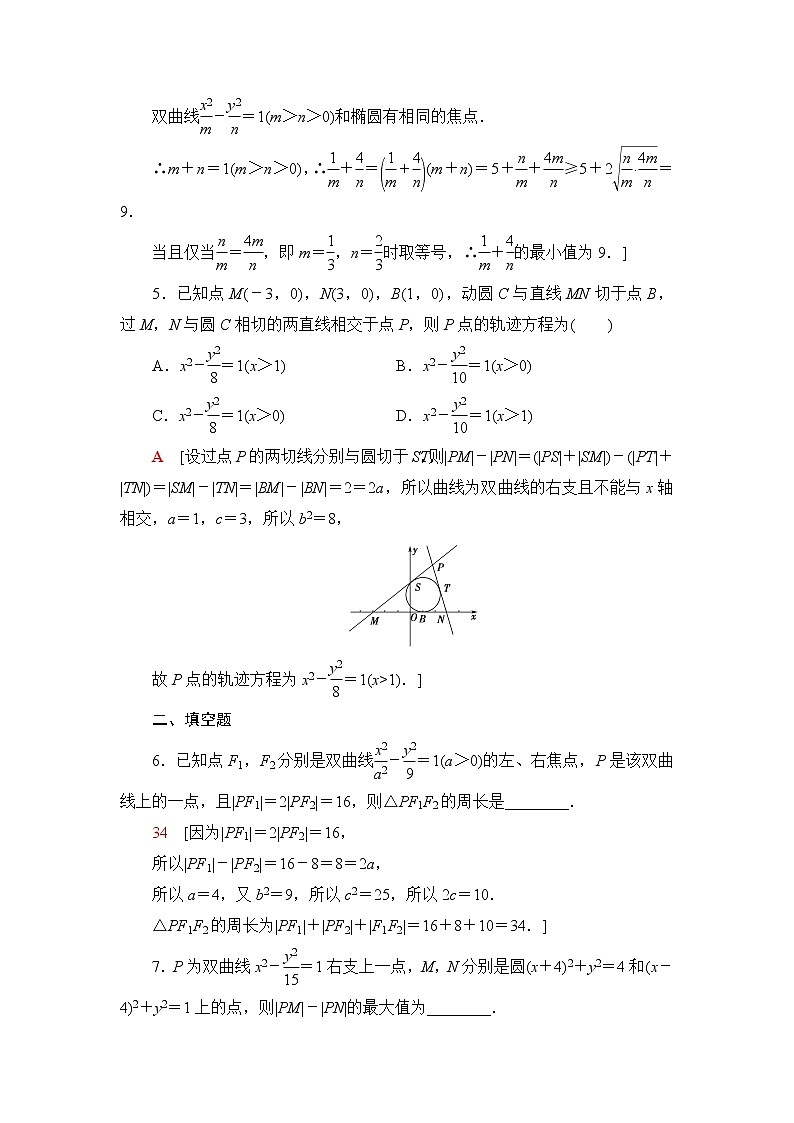 双曲线x²/m－y²/n＝1(m＞n＞0)和椭圆有相同的焦点．
∴m＋n＝1(m＞n＞0)，∴1/m＋4/n＝(1/m＋4/n)(m＋n)＝5＋n/m＋4m/n≥5＋2√(n/m·4m/n)＝
9．
当且仅当n/m＝4m/n，即 m＝1/3，n＝2/3时取等号，∴1/m＋4/n的最小值为 9．]
5．已知点 M(－3，0)，N(3，0)，B(1，0)，动圆 C 与直线 MN 切于点 B，
过 M，N 与圆 C 相切的两直线相交于点 P，则 P 点的轨迹方程为(　　)
A．x²－y²/8＝1(x＞1)　　B．x²－y²/10＝1(x＞0)
C．x²－y²/8＝1(x＞0)　　D．x²－y²/10＝1(x＞1)
A　[设过点 P 的两切线分别与圆切于 S,T,则|PM|－|PN|＝(|PS|＋|SM|)－(|PT|＋
|TN|)＝|SM|－|TN|＝|BM|－|BN|＝2＝2a，所以曲线为双曲线的右支且不能与 x 轴
相交，a＝1，c＝3，所以 b²＝8，
y
P
S
T
M
O
B
N
x
故 P 点的轨迹方程为 x²－y²/8＝1(x>1)．]
二、填空题
6．已知点 F₁，F₂分别是双曲线x²/a²－y²/9＝1(a＞0)的左、右焦点，P 是该双曲
线上的一点，且|PF₁|＝2|PF₂|＝16，则△PF₁F₂的周长是________．
34　[因为|PF₁|＝2|PF₂|＝16，
所以|PF₁|－|PF₂|＝16－8＝8＝2a，
所以 a＝4，又 b²＝9，所以 c²＝25，所以 2c＝10．
△PF₁F₂的周长为|PF₁|＋|PF₂|＋|F₁F₂|＝16＋8＋10＝34．]
7．P 为双曲线 x²－y²/15＝1 右支上一点，M，N 分别是圆(x＋4)²＋y²＝4 和(x－
4)²＋y²＝1 上的点，则|PM|－|PN|的最大值为________．